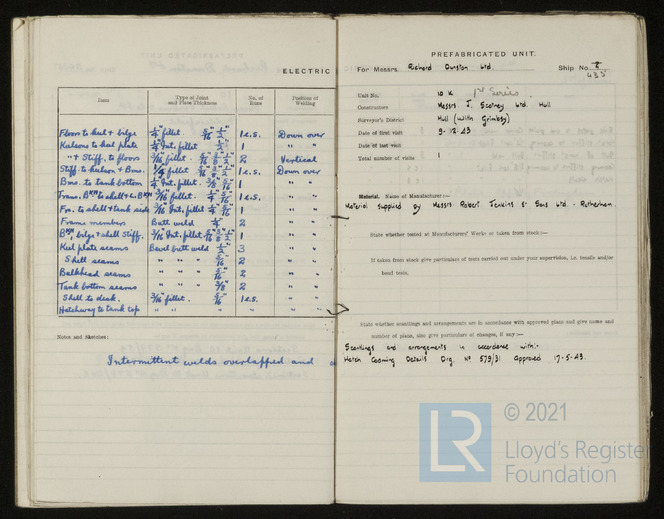 ELECTRIC
Item Type of Joint and Plate Thickness No. of Runs Position of Welding
Floors to keel + bilge 1/4" fillet. 5/16" 1/2" 1 e.s. Down over
Keelsons to keel plate 1/4" Int. fillet 1/2" 1 " "
" + Stiff. to floors 3/16" fillet. 2 Vertical
Stiff. to keelson + Bms. 1/4" fillet 1 e.s. Down over
Bms. to tank bottom 1/4" Int. fillet. 3/8" 5/16" 1 " "
3/16" fillet. 1/4" 5/16" 1 e.s. " "
Fr. to shell + tank side 3/16" Int. fillet 1 " "
Frame members Butt weld 1/4" 2 " "
bilge + shell Stiff. 3/16" Int. fillet 1 " "
Keel plate seams Bevel butt weld 1/2" 3 " "
Shell seams " " " 5/16" 2 " "
Bulkhead seams " " " 5/16" 2 " "
Tank bottom seams " " " 3/8" 2 " "
Shell to deck. 3/16" fillet. 5/16" 1 e.s. " "
Hatchway to tank top " " " " "
Notes and Sketches:
Intermittent welds overlapped and
PREFABRICATED UNIT.
For Messrs. Richard Dunston Ltd. Ship No. T/635
Unit No. 10 K 1st Series.
Constructors Messrs J. Scarney Ltd. Hull
Surveyor's District Hull (with Grimsby)
Date of first visit 9-12-43
Date of last visit
Total number of visits 1
Material. Name of Manufacturer:—
Material supplied by Messrs Robert Jenkins & Sons Ltd. - Rotherham.
State whether tested at Manufacturers' Works or taken from stock:—
If taken from stock give particulars of tests carried out under your supervision, i.e. tensile and/or
bend tests.
State whether scantlings and arrangements are in accordance with approved plans and give name and
number of plans, also give particulars of changes, if any:—
Scantlings and arrangements in accordance with:-
Hatch Coaming Details Drg. No 579/31 Approved 17-5-43.
LR
© 2021
Lloyd's Register
Foundation